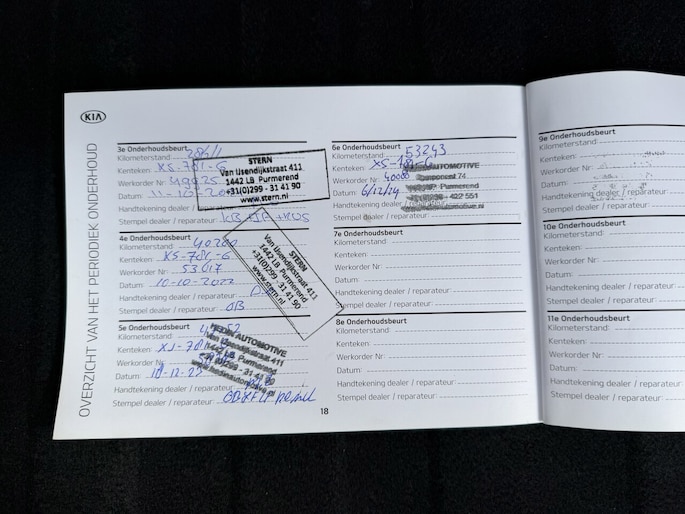 KIA
OVERZICHT VAN HET PERIODIEK ONDERHOUD
3e Onderhoudsbeurt
Kilometerstand:
Kenteken: XS-781-G
Werkorder Nr:
Datum:
Handtekening dealer / reparateur:
Stempel dealer / reparateur:
STERN
Van IJsendijkstraat 411
1442 LB Purmerend
+31(0)299 - 31 41 90
www.stern.nl
4e Onderhoudsbeurt
Kilometerstand: 40200
Kenteken: XS-781-G
Werkorder Nr: 53017
Datum: 10-10-2022
Handtekening dealer / reparateur:
Stempel dealer / reparateur: OB
STERN
Van IJsendijkstraat 411
1442 LB Purmerend
+31(0)299 - 31 41 90
www.stern.nl
5e Onderhoudsbeurt
Kilometerstand:
Kenteken:
Werkorder Nr:
Datum:
Handtekening dealer / reparateur:
Stempel dealer / reparateur:
HEDIN AUTOMOTIVE
Van IJsendijkstraat 411
1442 LB Purmerend
+31(0)299 - 31 41 90
6e Onderhoudsbeurt
Kilometerstand: 53243
Kenteken:
Werkorder Nr: 40000
Datum: 6/12/24
Handtekening dealer / reparateur:
Stempel dealer / reparateur:
AUTOMOTIVE
74
Purmerend
- 422 551
7e Onderhoudsbeurt
Kilometerstand:
Kenteken:
Werkorder Nr:
Datum:
Handtekening dealer / reparateur:
Stempel dealer / reparateur:
8e Onderhoudsbeurt
Kilometerstand:
Kenteken:
Werkorder Nr:
Datum:
Handtekening dealer / reparateur:
Stempel dealer / reparateur:
18
9e Onderhoudsbeurt
Kilometerstand:
Kenteken:
Werkorder Nr:
Datum:
Handtekening dealer / reparateur:
Stempel dealer / reparateur:
10e Onderhoudsbeurt
Kilometerstand:
Kenteken:
Werkorder Nr:
Datum:
Handtekening dealer / reparateur:
Stempel dealer / reparateur:
11e Onderhoudsbeurt
Kilometerstand:
Kenteken:
Werkorder Nr:
Datum:
Handtekening dealer / reparateur:
Stempel dealer / reparateur: